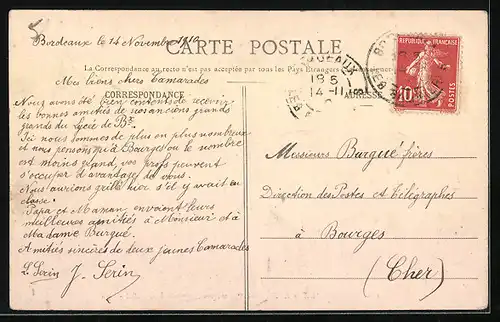 5
Bordeaux le 14 Novembre 1910
CARTE POSTALE
La Correspondance au recto n'est pas acceptée par tous les Pays Étrangers
Mes biens chers Camarades
CORRESPONDANCE
ADRESSE
Nous avons été bien contents de recevoir
les bonnes amitiés de nos anciens grands
grands du Lycée de Bx
Ici nous sommes de plus en plus nombreux
et nous pensons qu'à Bourges ou le nombre
est moins grand, vos profs peuvent
s'occuper d'avantage de vous.
Nous aurions grillé hier s'il y avait eu
classe.
Papa et Maman envoient leurs
meilleures amitiés à Monsieur et à
Madame Burgué.
Amitiés sincères de deux jeunes Camarades
L. Serin J. Serin
BORDEAUX
18 5
14-11
RÉPUBLIQUE FRANÇAISE
10
POSTES
Messieurs Burgué frères
Direction des Postes et Télégraphes
à
Bourges
(Cher)